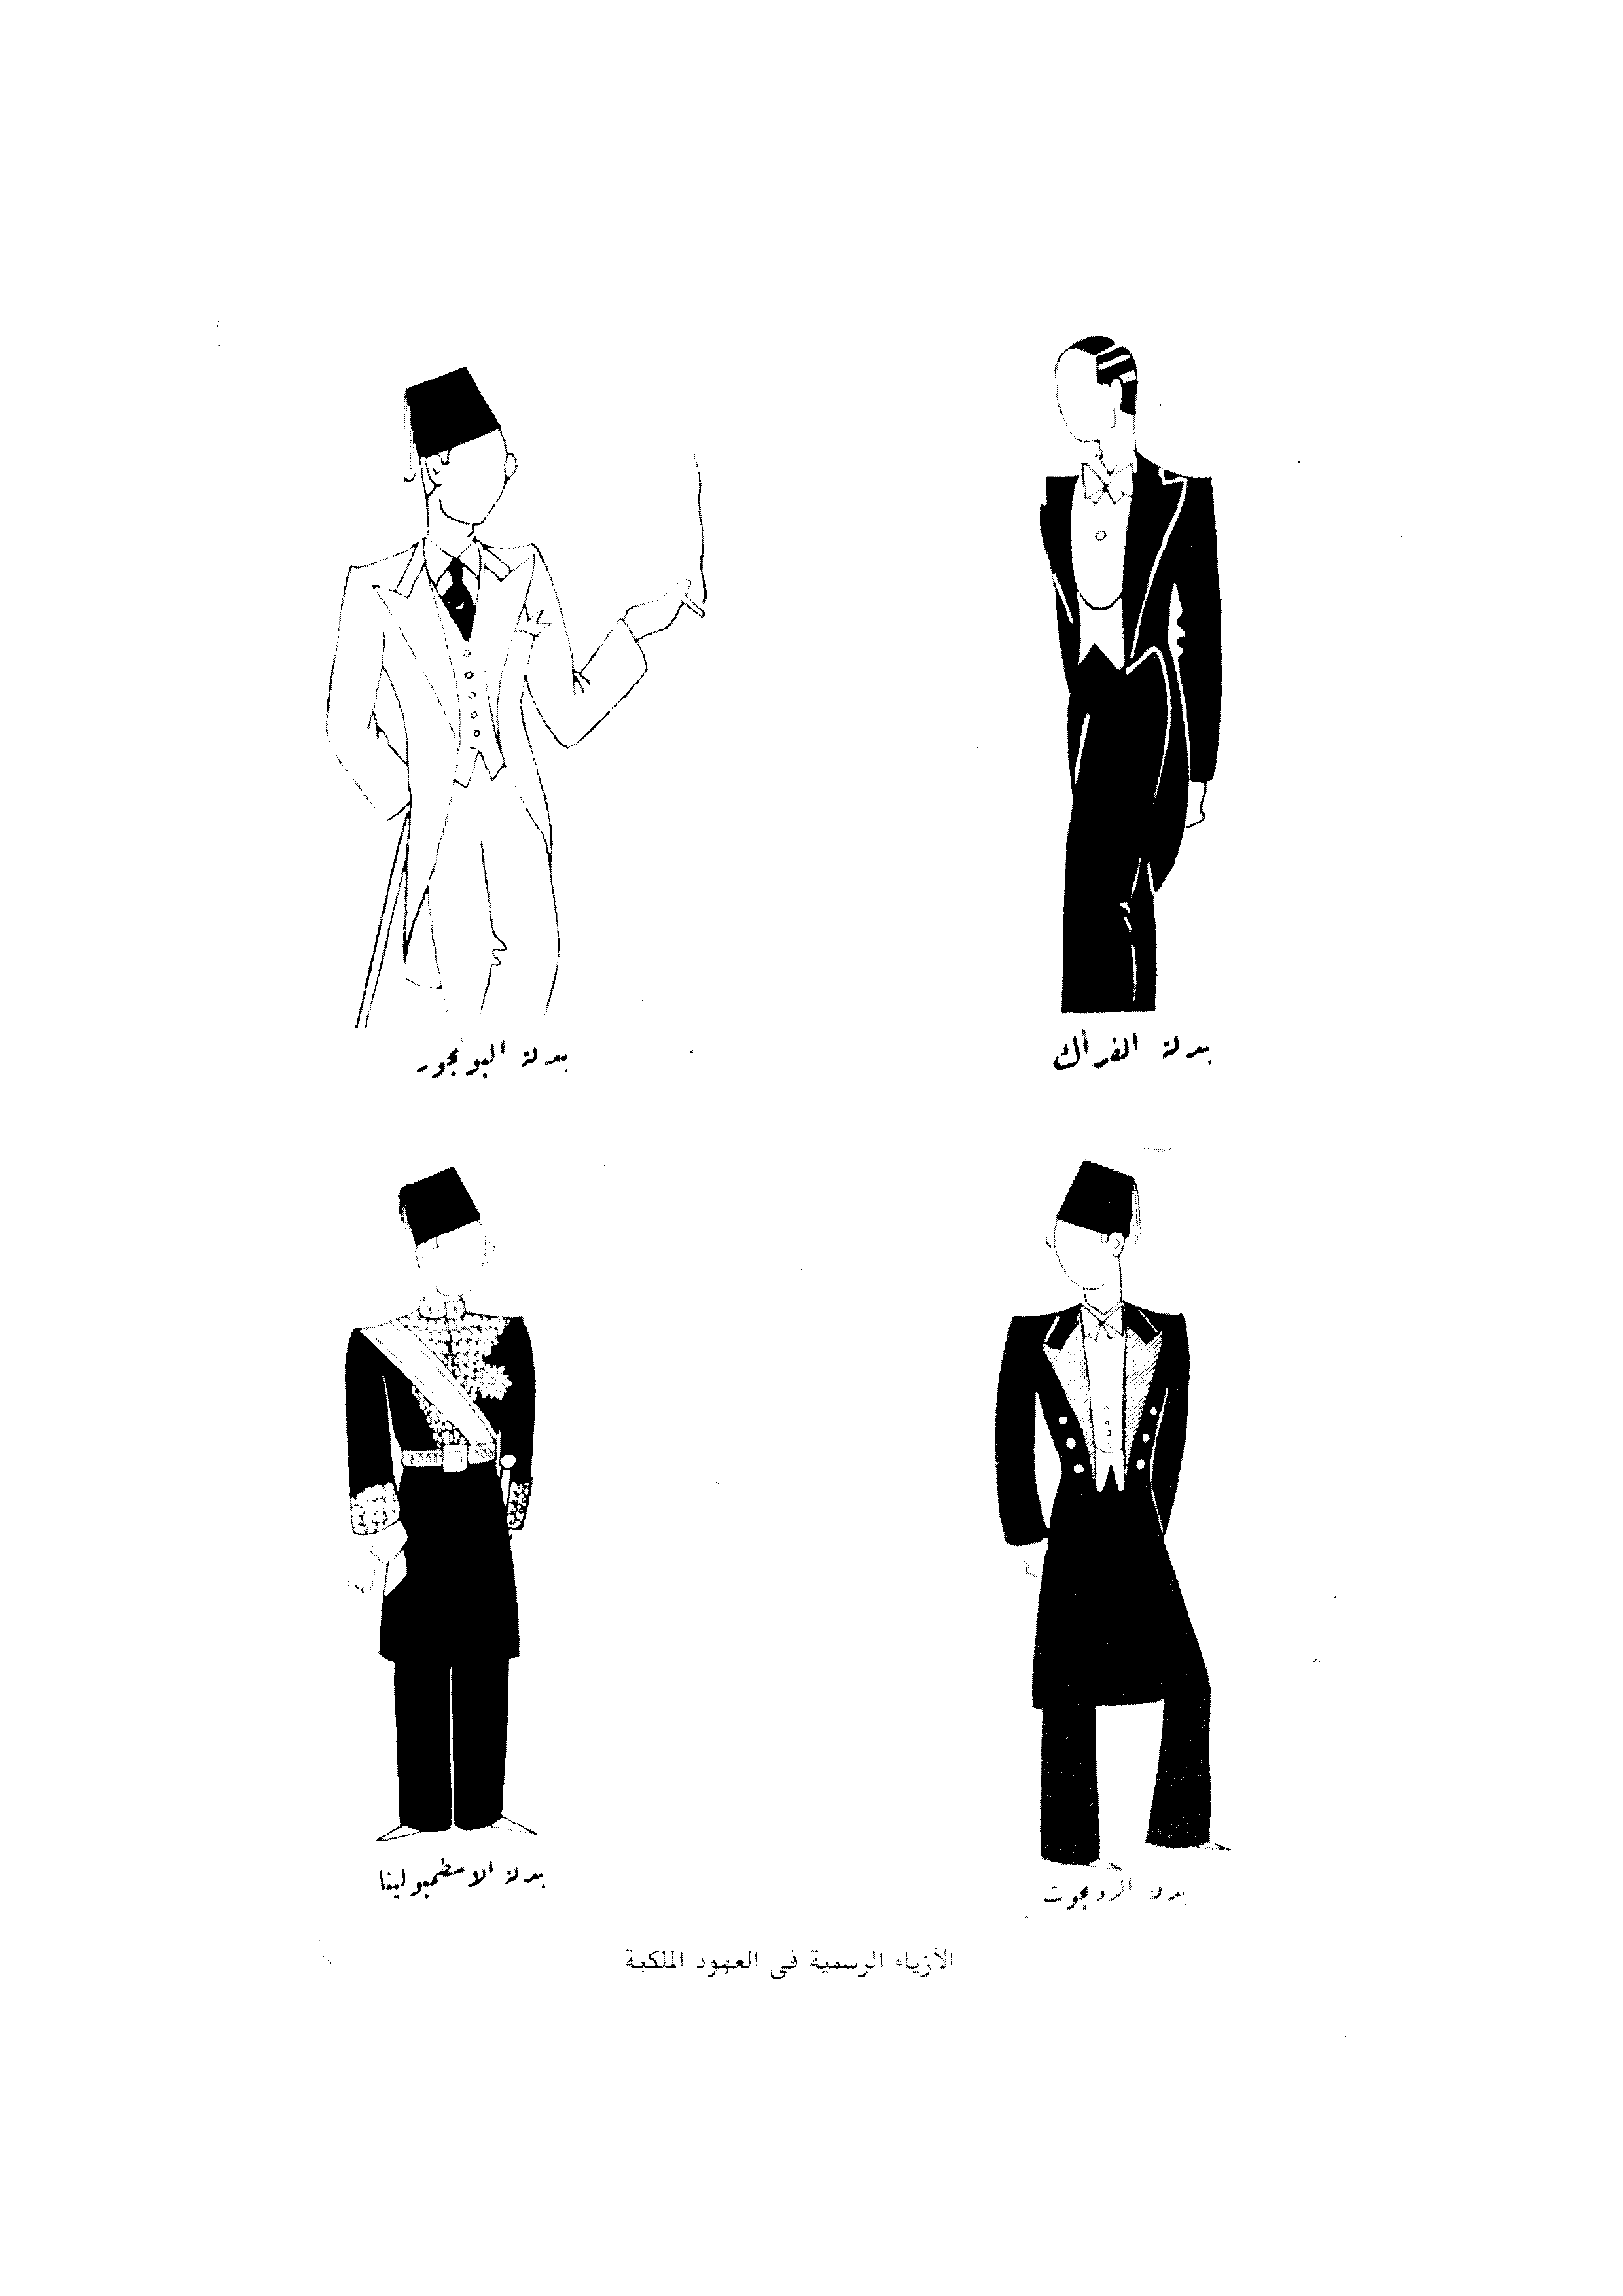 بدلة الفراك
بدلة البونجور
بدلة الردنجوت
بدلة الاسطمبولينا
الأزياء الرسمية فى العهود الملكية